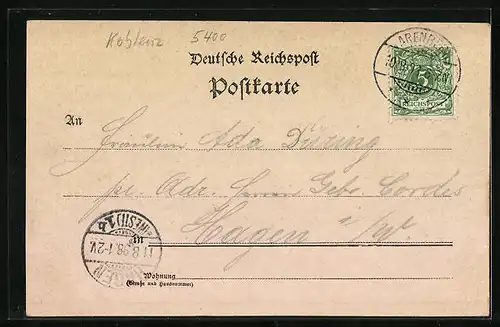 Koblenz 5400
Deutsche Reichspost
Postkarte
ARENB
5
REICHSPOST
An
Fräulein Ada Düring
pr. Adr. Herrn Gebr. Cordes
Hagen i/W.
in
HAGEN
11.8.98.1-2V.
(WESTF.) 1
Wohnung
(Straße und Hausnummer)